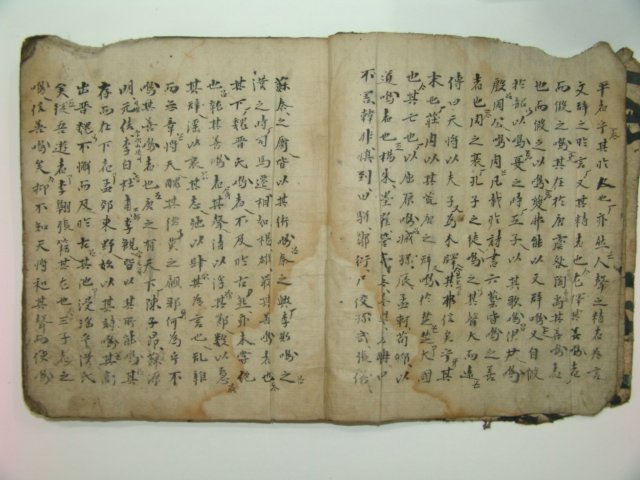 平者乎其於人也亦然人聲之精者為言
文辭之於言又其精者也尤擇其善鳴者
而假之鳴其在於唐虞咎陶禹其善鳴者
也而假之以鳴夔弗能以文辭鳴又自假
於韶以鳴夏之時五子以其歌鳴伊尹鳴
殷周公鳴周凡載於詩書六藝皆鳴之善
者也周之衰孔子之徒鳴之其聲大而遠
傳曰天將以夫子為木鐸其弗信矣乎其
末也莊周以其荒唐之辭鳴於楚楚大國
也其亡也以屈原鳴臧孫辰孟軻荀卿以
道鳴者也楊朱墨翟管夷吾晏嬰老聃申
不害韓非慎到田駢鄒衍尸佼孫武張儀
蘇秦之屬皆以其術鳴秦之興李斯鳴之
漢之時司馬遷相如楊雄最其善鳴者也
其下魏晋氏鳴者不及於古然亦未嘗絕
也就其善鳴者其聲清以浮其節數以急
其辭淫以哀其志弛以肆其為言也乱雜
而無章將天醜其德莫之顧耶何為乎不
鳴其善鳴者也唐之有天下陳子昂蘇源
明元結李白杜甫李觀皆以其所能鳴其
存而在下者孟郊東野始以其詩鳴其高
出晋魏不懈而及於古其他浸淫乎漢氏
矣從吾遊者李翱張籍其尤也三子者之
鳴信善鳴矣抑不知天將和其聲而使鳴